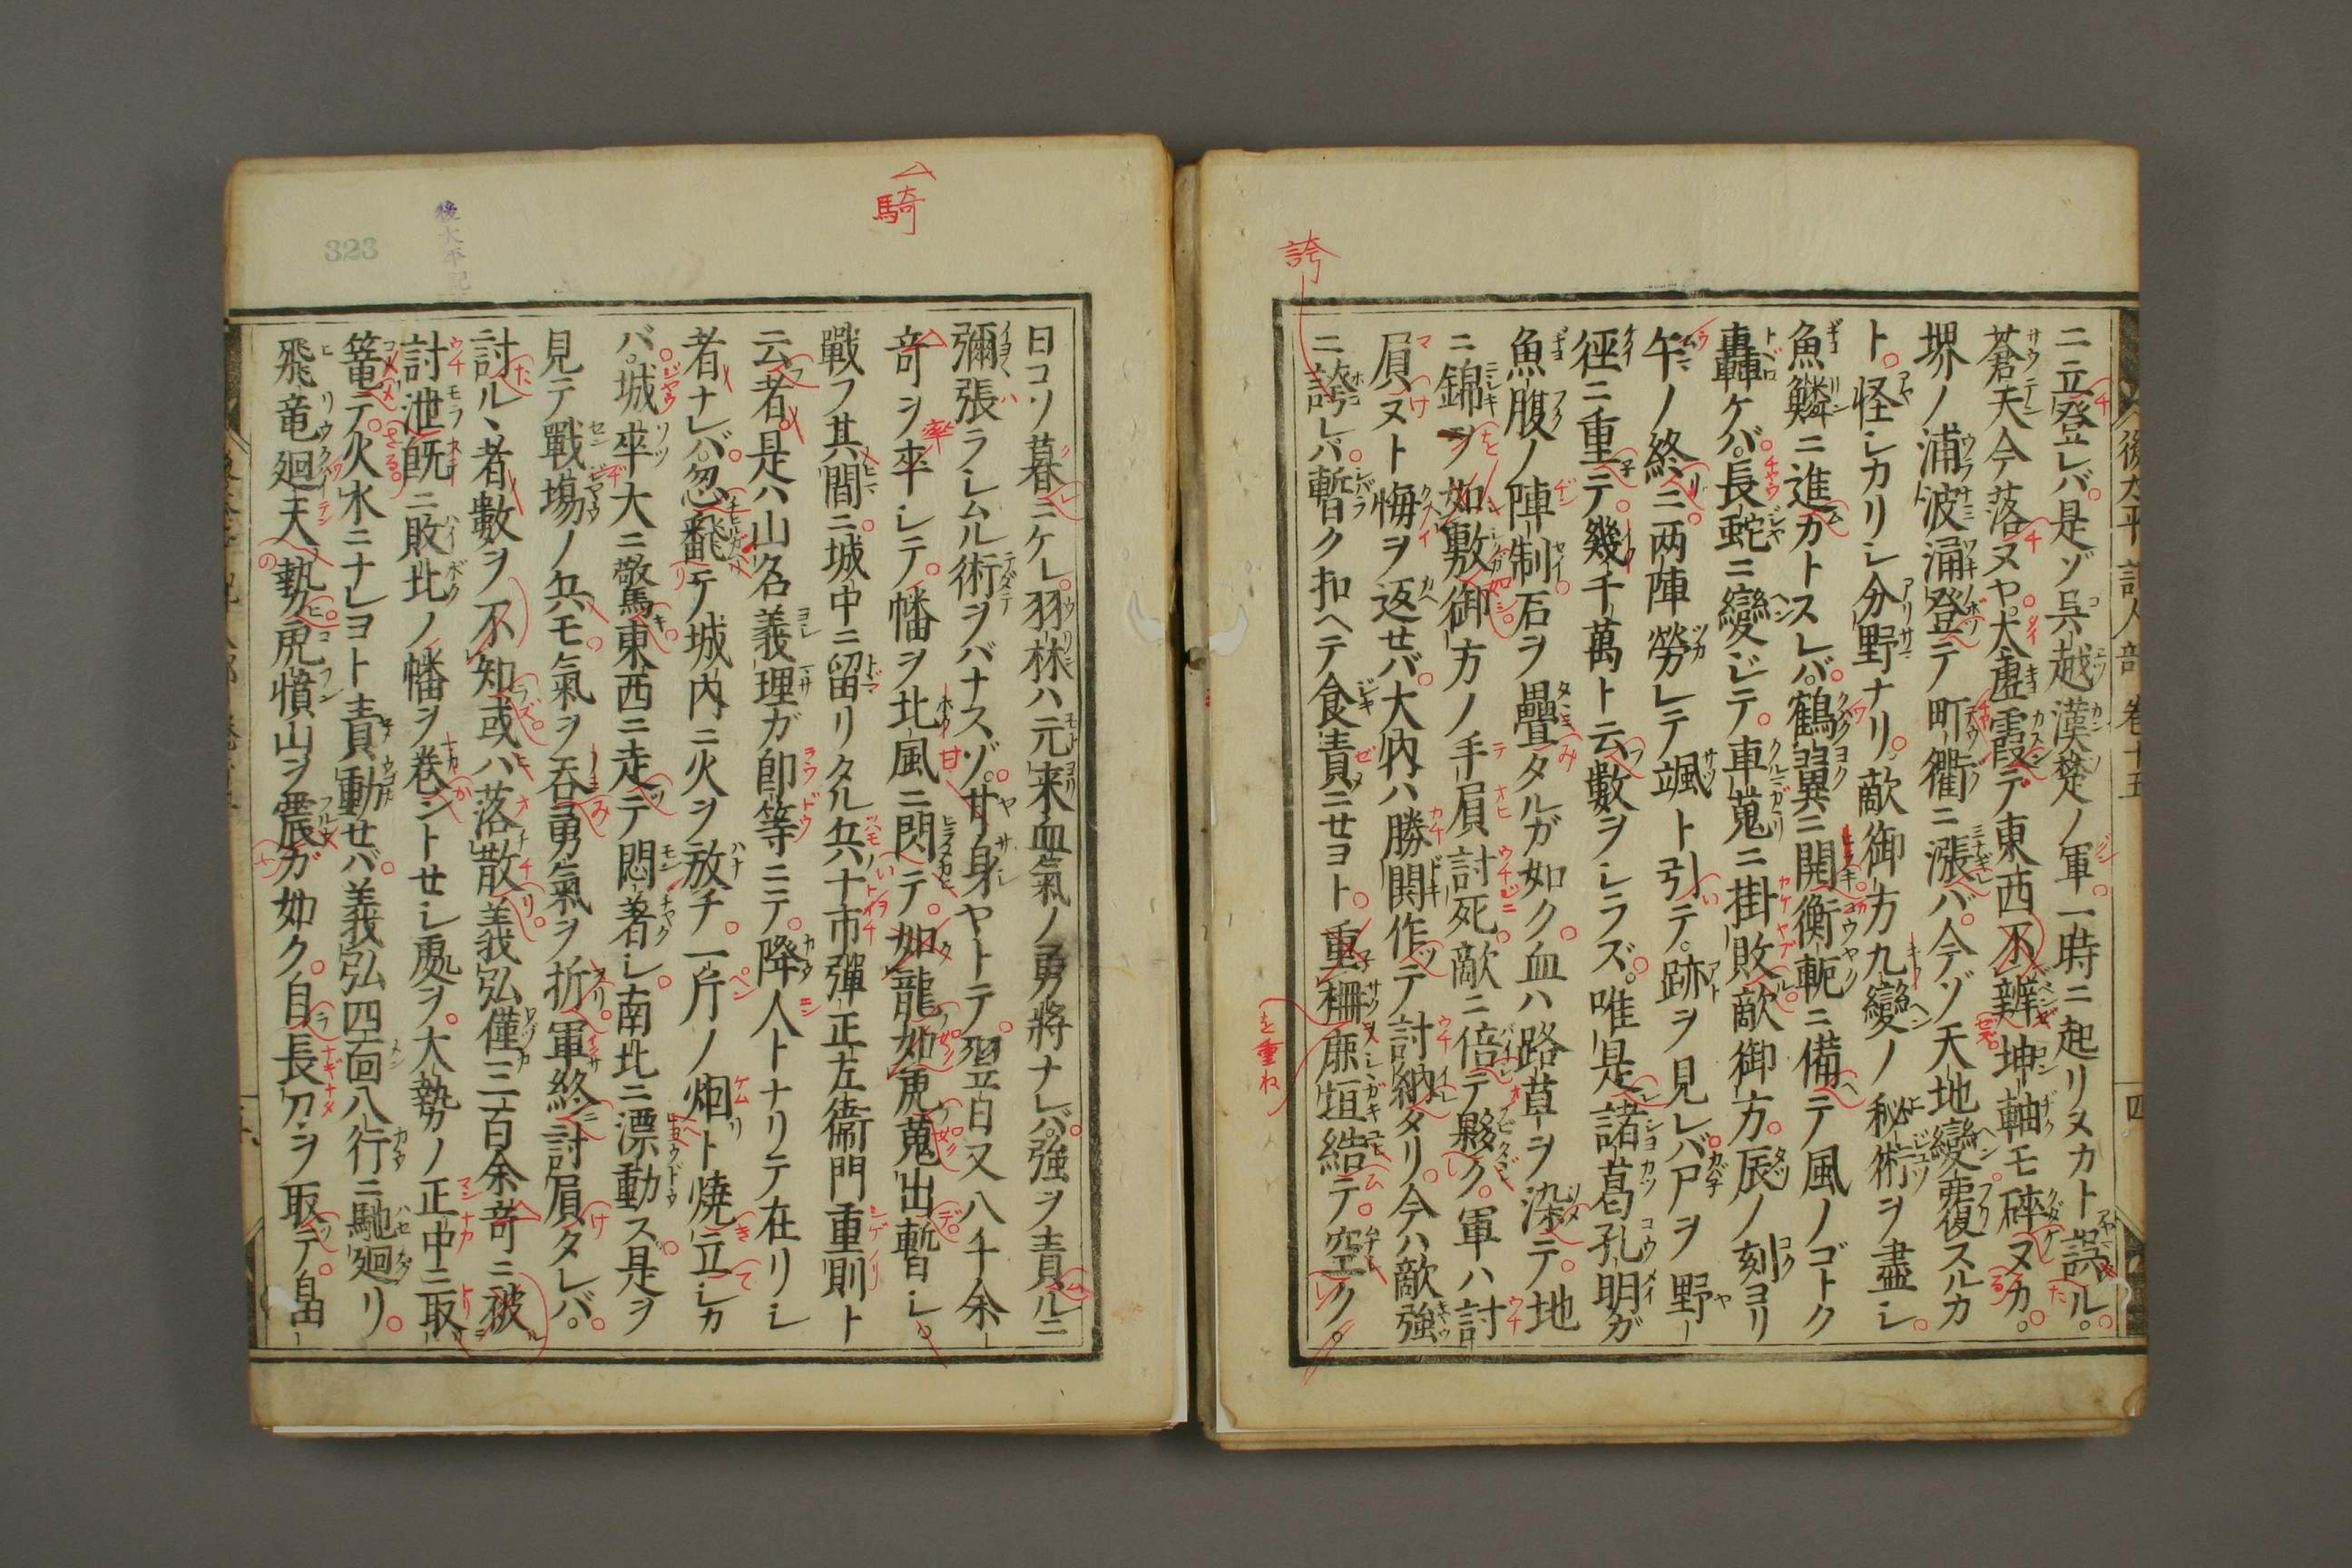 後太平記人部 巻十五 四
ニ立登レバ是ゾ呉越漢楚ノ軍一時ニ起リヌカト誤ル
蒼天今落ヌヤ大虚霞デ東西不辨坤軸モ砕ヌカ
堺ノ浦波涌登テ町衢ニ漲バ今ゾ天地變復スルカ
ト怪シカリシ分野ナリ敵御方九變ノ秘術ヲ盡シ
魚鱗ニ進カトスレバ鶴翼ニ開衡軛ニ備テ風ノゴトク
轟ケバ長蛇ニ變ジテ車蒐ニ掛敗敵御方辰ノ刻ヨリ
午ノ終ニ两陣勞レテ颯ト引テ跡ヲ見レバ尸ヲ野
徑ニ重テ幾千萬ト云數ヲシラズ唯是諸葛孔明ガ
魚腹ノ陣制石ヲ疊タルガ如ク血ハ路草ヲ染テ地
ニ錦ヲ如敷御方ノ手屓討死敵ニ倍テ夥ク軍ハ討
屓ヌト悔ヲ返セバ大内ハ勝関作テ討納タリ今ハ敵強
ニ誇レバ暫ク扣ヘテ食責ニセヨト重柵𢈘垣結テ空ク
誇
を重ね
日コソ暮ニケレ羽林ハ元来血氣ノ勇將ナレバ強ヲ責ルニ
彌張ラレムル術ヲバナスゾ甘身ヤトテ翌日又八千余
竒ヲ率シテ幡ヲ北風ニ閃テ如龍如虎蒐出暫シ
戰フ其間ニ城中ニ留リタル兵十市彈正左衞門重則ト
云者是ハ山名義理ガ郎等ニテ降人トナリテ在リシ
者ナレバ忽飜テ城内ニ火ヲ放チ一片ノ烟ト燒立シカ
バ城卒大ニ驚東西ニ走テ悶着シ南北ニ漂動ス是ヲ
見テ戰塲ノ兵モ氣ヲ呑勇氣ヲ折軍終討屓タレバ
討ルヽ者數ヲ不知或ハ落散義弘僅三百余竒ニ被
討泄既ニ敗北ノ幡ヲ巻ントセシ處ヲ大勢ノ正中ニ取
篭テ火水ニナレヨト責動セバ義弘四面八行ニ馳廻リ
飛竜廻天勢虎憤山ヲ震ガ如ク自長刀ヲ取テ畠
騎
後太平記
323